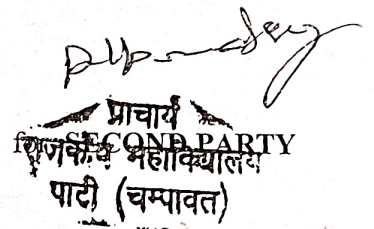 प्राचार्य
for SECOND PARTY
राजकीय महाविद्यालय
पाटी (चम्पावत)